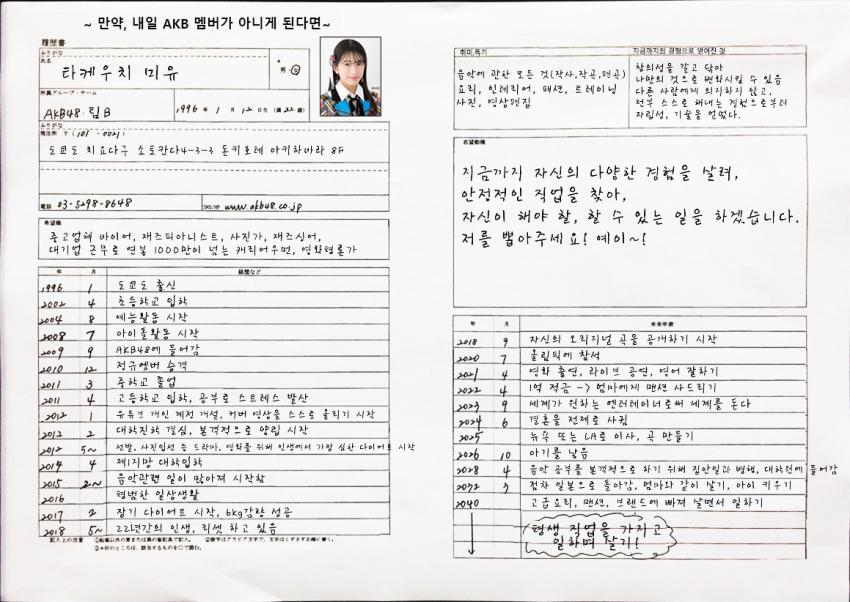 ~ 만약, 내일 AKB 멤버가 아니게 된다면~
履歴書
ふりがな
氏名
타케우치 미유
男・女
所属グループ・チーム
AKB48 팀B
1996 年 1 月 12 日生 (満 22 歳)
ふりがな
現住所 〒(101-0021)
도쿄도 치요다구 소토칸다4-3-3 돈키호테 아키하바라 8F
電話 03-5298-8648
www.akb48.co.jp
希望職
중고업체 바이어, 재즈피아니스트, 사진가, 재즈싱어,
대기업 근무로 연봉 1000만이 넘는 캐리어우먼, 영화평론가
年 月 経歴など
1996 1 도쿄도 출신
2002 4 초등학교 입학
2004 8 예능활동 시작
2008 7 아이돌활동 시작
2009 9 AKB48에 들어감
2010 12 정규멤버 승격
2011 3 중학교 졸업
2011 4 고등학교 입학, 공부로 스트레스 발산
2012 1 유튜브 개인 계정 개설, 커버 영상을 스스로 올리기 시작
2012 2 대학진학 결심, 본격적으로 양립 시작
2012 5~ 선발, 사진집선 등 드라마, 영화를 위해 인생에서 가장 심한 다이어트 시작
2014 4 제1지망 대학입학
2015 2~ 음악관련 일이 많아져 시작함
2016 평범한 일상생활
2017 2 장기 다이어트 시작, 6kg감량 성공
2018 5~ 22년간의 인생, 리셋 하고 있음
記入上の注意 ①鉛筆以外の青または黒の筆記具で記入。 ②数字はアラビア文字で、文字はくずさず正確に書く。
③※印のところは、該当するものを○で囲む。
취미,특기
음악에 관한 모든 것(작사,작곡,편곡)
요리, 인테리어, 패션, 트레이닝
사진, 영상편집
지금까지의 경험으로 얻어진 것
창의성을 갈고 닦아
나만의 것으로 변화시킬 수 있음
다른 사람에게 의지하지 않고,
전부 스스로 해내는 경험으로부터
자립성, 기술을 얻었다.
希望動機
지금까지 자신의 다양한 경험을 살려,
안정적인 직업을 찾아,
자신이 해야 할, 할 수 있는 일을 하겠습니다.
저를 뽑아주세요! 예이~!
年 月 未来年表
2018 9 자신의 오리지널 곡을 공개하기 시작
2020 7 올림픽에 참석
2021 4 영화 출연, 라이브 공연, 영어 잘하기
2022 4 1억 저금 -> 엄마에게 맨션 사드리기
2023 9 세계가 원하는 엔터테이너로써 세계를 돈다
2024 6 결혼을 전제로 사귐
2025 뉴욕 또는 LA로 이사, 곡 만들기
2026 10 아기를 낳음
2028 4 음악 공부를 본격적으로 하기 위해 집안일과 병행, 대학원에 들어감
2032 3 점차 일본으로 돌아감, 엄마와 같이 살기, 아이 키우기
2040 고급요리, 맨션, 브랜드에 빠져 살면서 일하기
평생 직업을 가지고
일하며 살기!